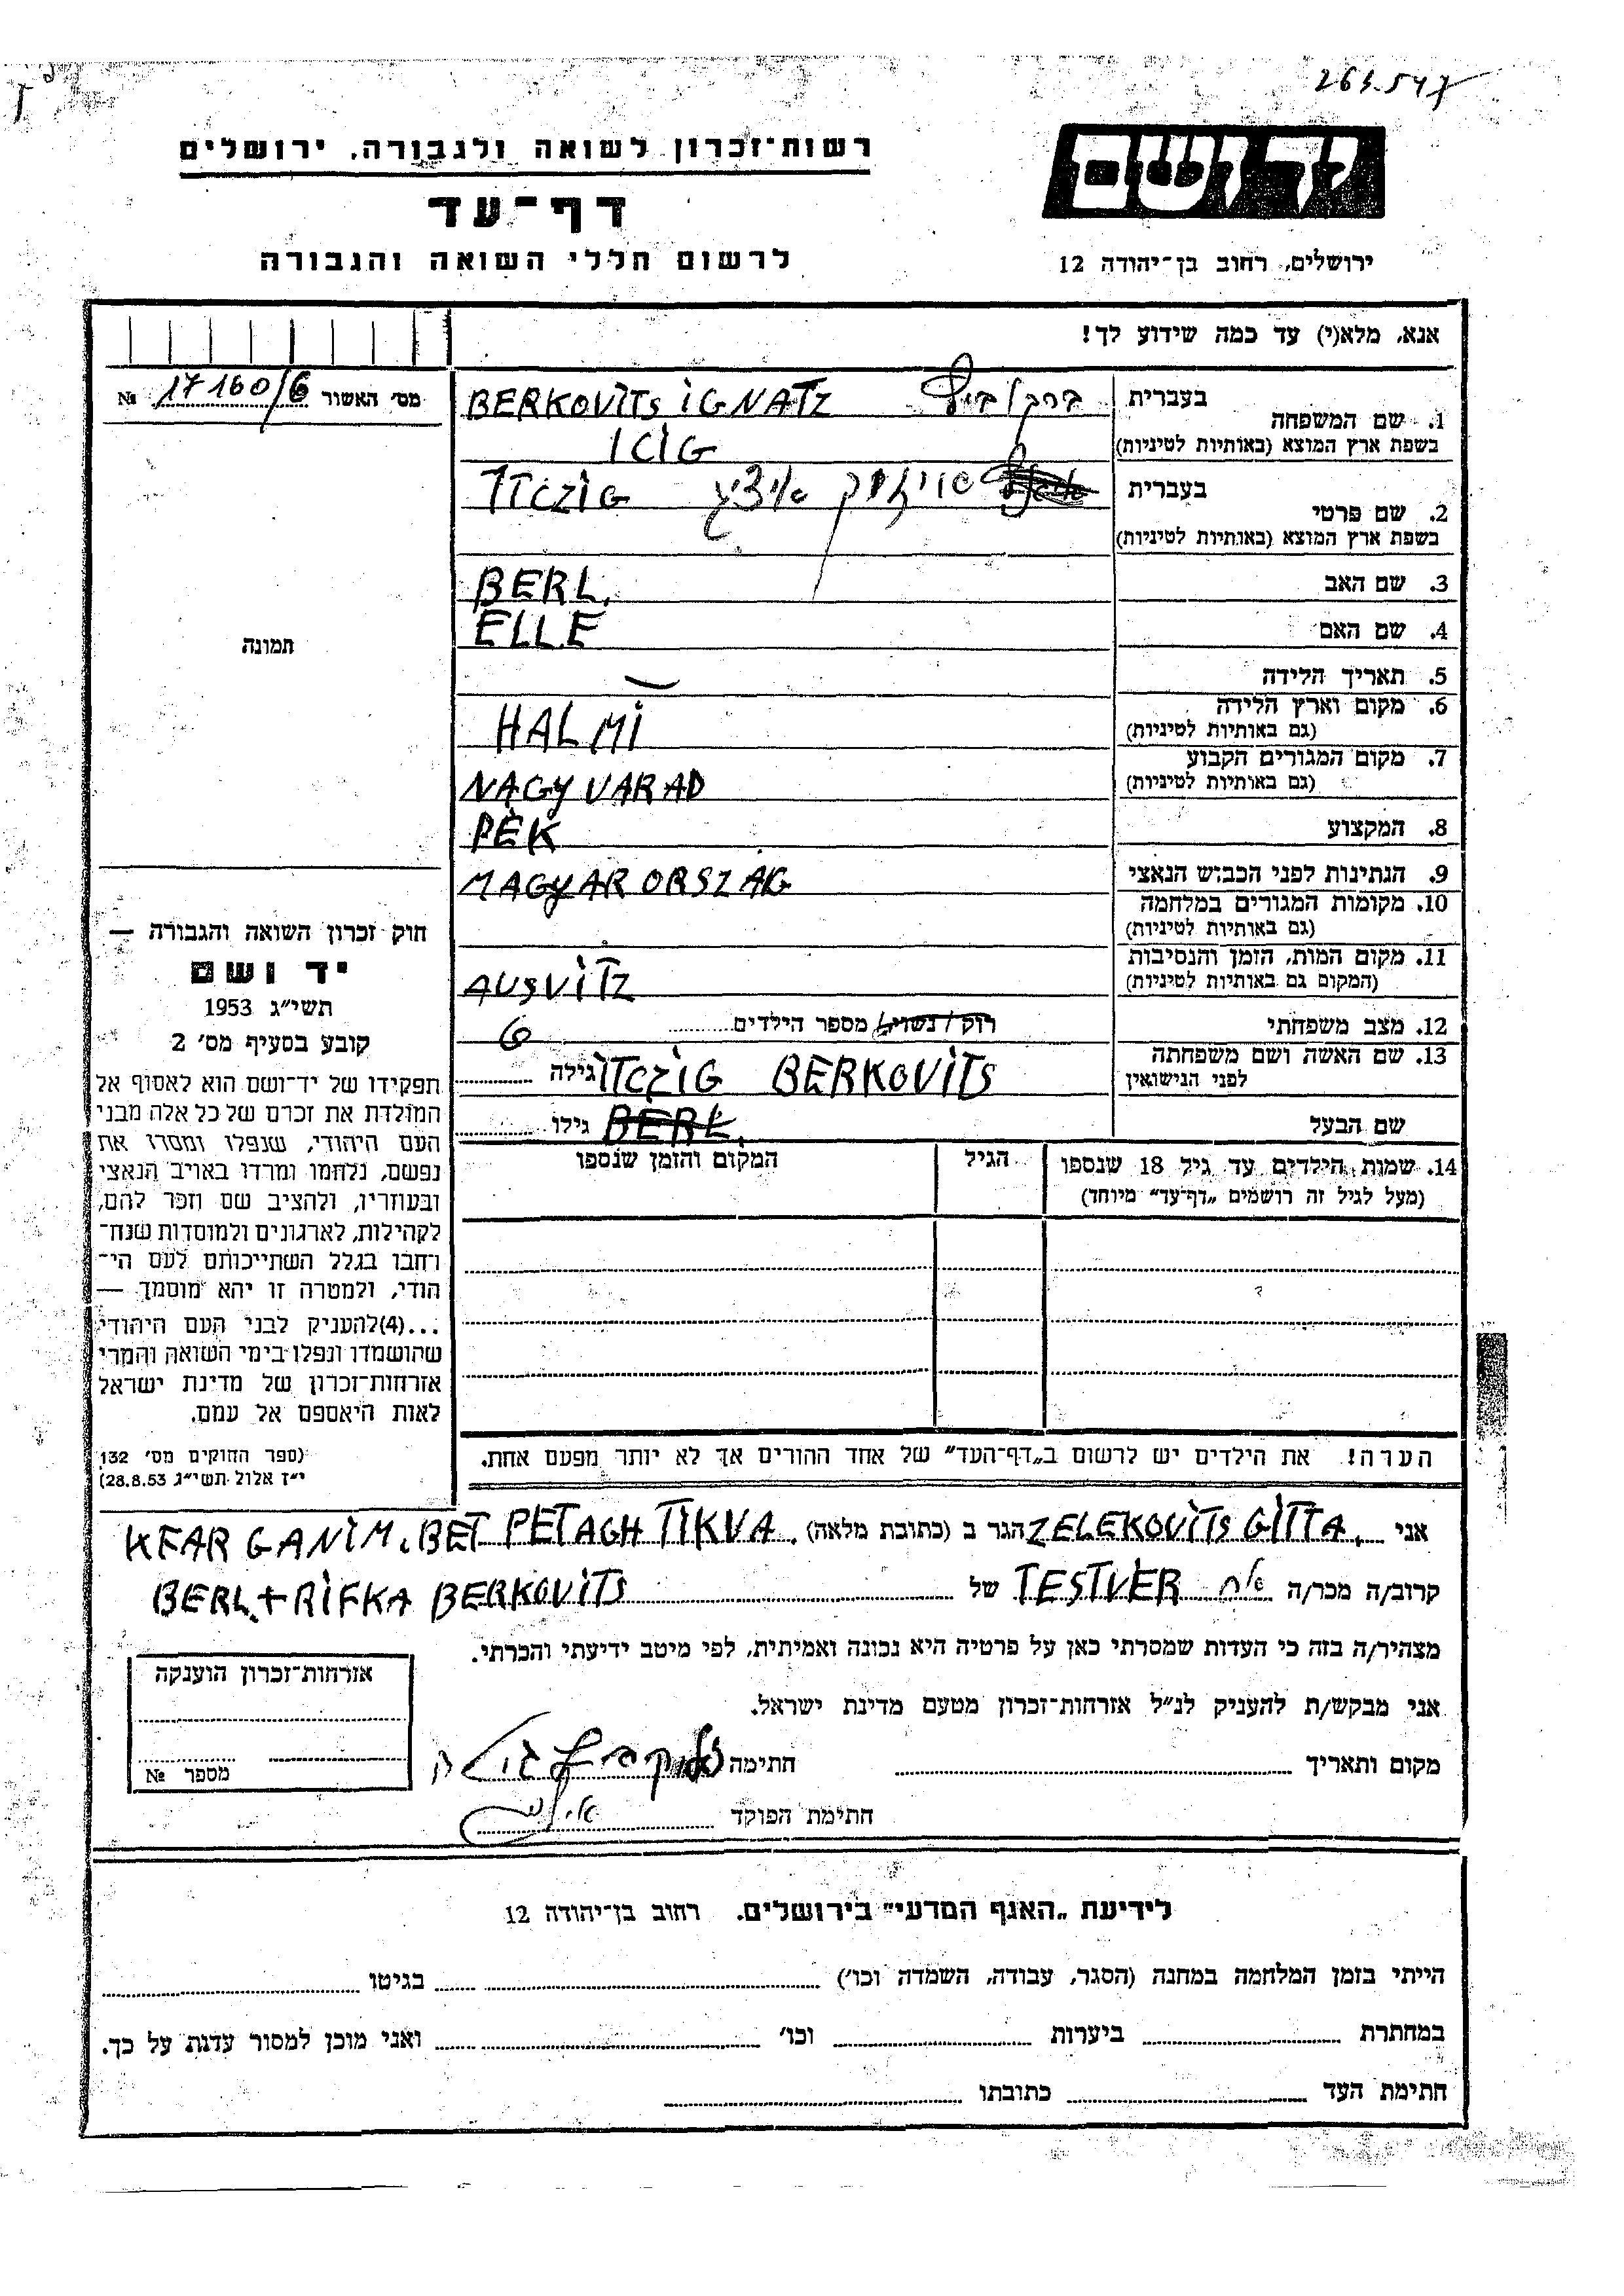 263.547
רשות־זכרון לשואה ולגבורה, ירושלים
יד ושם
דף־עד
לרשום חללי השואה והגבורה
ירושלים, רחוב בן־יהודה 12
אנא, מלא(י) עד כמה שידוע לך!
מס׳ האשור 17160/6 №
1. שם המשפחה
בעברית ברקוביץ BERKOVITS IGNATZ
בשפת ארץ המוצא (באותיות לטיניות) ICIG
2. שם פרטי
בעברית איציג ITCZIG
בשפת ארץ המוצא (באותיות לטיניות)
3. שם האב BERL.
4. שם האם ELLE
5. תאריך הלידה —
6. מקום וארץ הלידה
(גם באותיות לטיניות) HALMI
7. מקום המגורים הקבוע
(גם באותיות לטיניות) NAGYVARAD
8. המקצוע PÉK
9. הנתינות לפני הכבוש הנאצי MAGYARORSZAG
10. מקומות המגורים במלחמה
(גם באותיות לטיניות)
11. מקום המות, הזמן והנסיבות
(המקום גם באותיות לטיניות) AUSVITZ
12. מצב משפחתי רווק/נשוי/ מספר הילדים 6
13. שם האשה ושם משפחתה
לפני הנישואין ITCZIG BERKOVITS גילה
שם הבעל BERL. גילו
14. שמות הילדים עד גיל 18 שנספו
(מעל לגיל זה רושמים „דף־עד” מיוחד)
הגיל
המקום והזמן שנספו
הערה! את הילדים יש לרשום ב„דף־העד” של אחד ההורים אך לא יותר מפעם אחת.
תמונה
חוק זכרון השואה והגבורה —
יד ושם
תשי״ג 1953
קובע בסעיף מס׳ 2
תפקידו של יד־ושם הוא לאסוף אל
המולדת את זכרם של כל אלה מבני
העם היהודי, שנפלו ומסרו את
נפשם, נלחמו ומרדו באויב הנאצי
ובעוזריו, ולהציב שם וזכר להם,
לקהילות, לארגונים ולמוסדות שנח־
רחבו בגלל השתייכותם לעם הי־
הודי, ולמטרה זו יהא מוסמך —
...(4) להעניק לבני העם היהודי
שהושמדו ונפלו בימי השואה והמרי
אזרחות־זכרון של מדינת ישראל
לאות היאספם אל עמם.
(ספר החוקים מס׳ 132
י״ז אלול תשי״ג 28.8.53)
אני ZELEKOVITS GITTA. הגר ב (כתובת מלאה) KFAR GANIM. BET PETAGH TIKVA.
קרוב/ה מכר/ה אח TESTVER של BERL + RIFKA BERKOVITS
מצהיר/ה בזה כי העדות שמסרתי כאן על פרטיה היא נכונה ואמיתית, לפי מיטב ידיעתי והכרתי.
אני מבקש/ת להעניק לנ״ל אזרחות־זכרון מטעם מדינת ישראל.
מקום ותאריך
חתימה
חתימת הפוקד
אזרחות־זכרון הוענקה
מספר №
לידיעת „האגף המדעי” בירושלים. רחוב בן־יהודה 12
הייתי בזמן המלחמה במחנה (הסגר, עבודה, השמדה וכו׳) בגיטו
במחתרת ביערות וכו׳ ואני מוכן למסור עדות על כך.
חתימת העד כתובתו